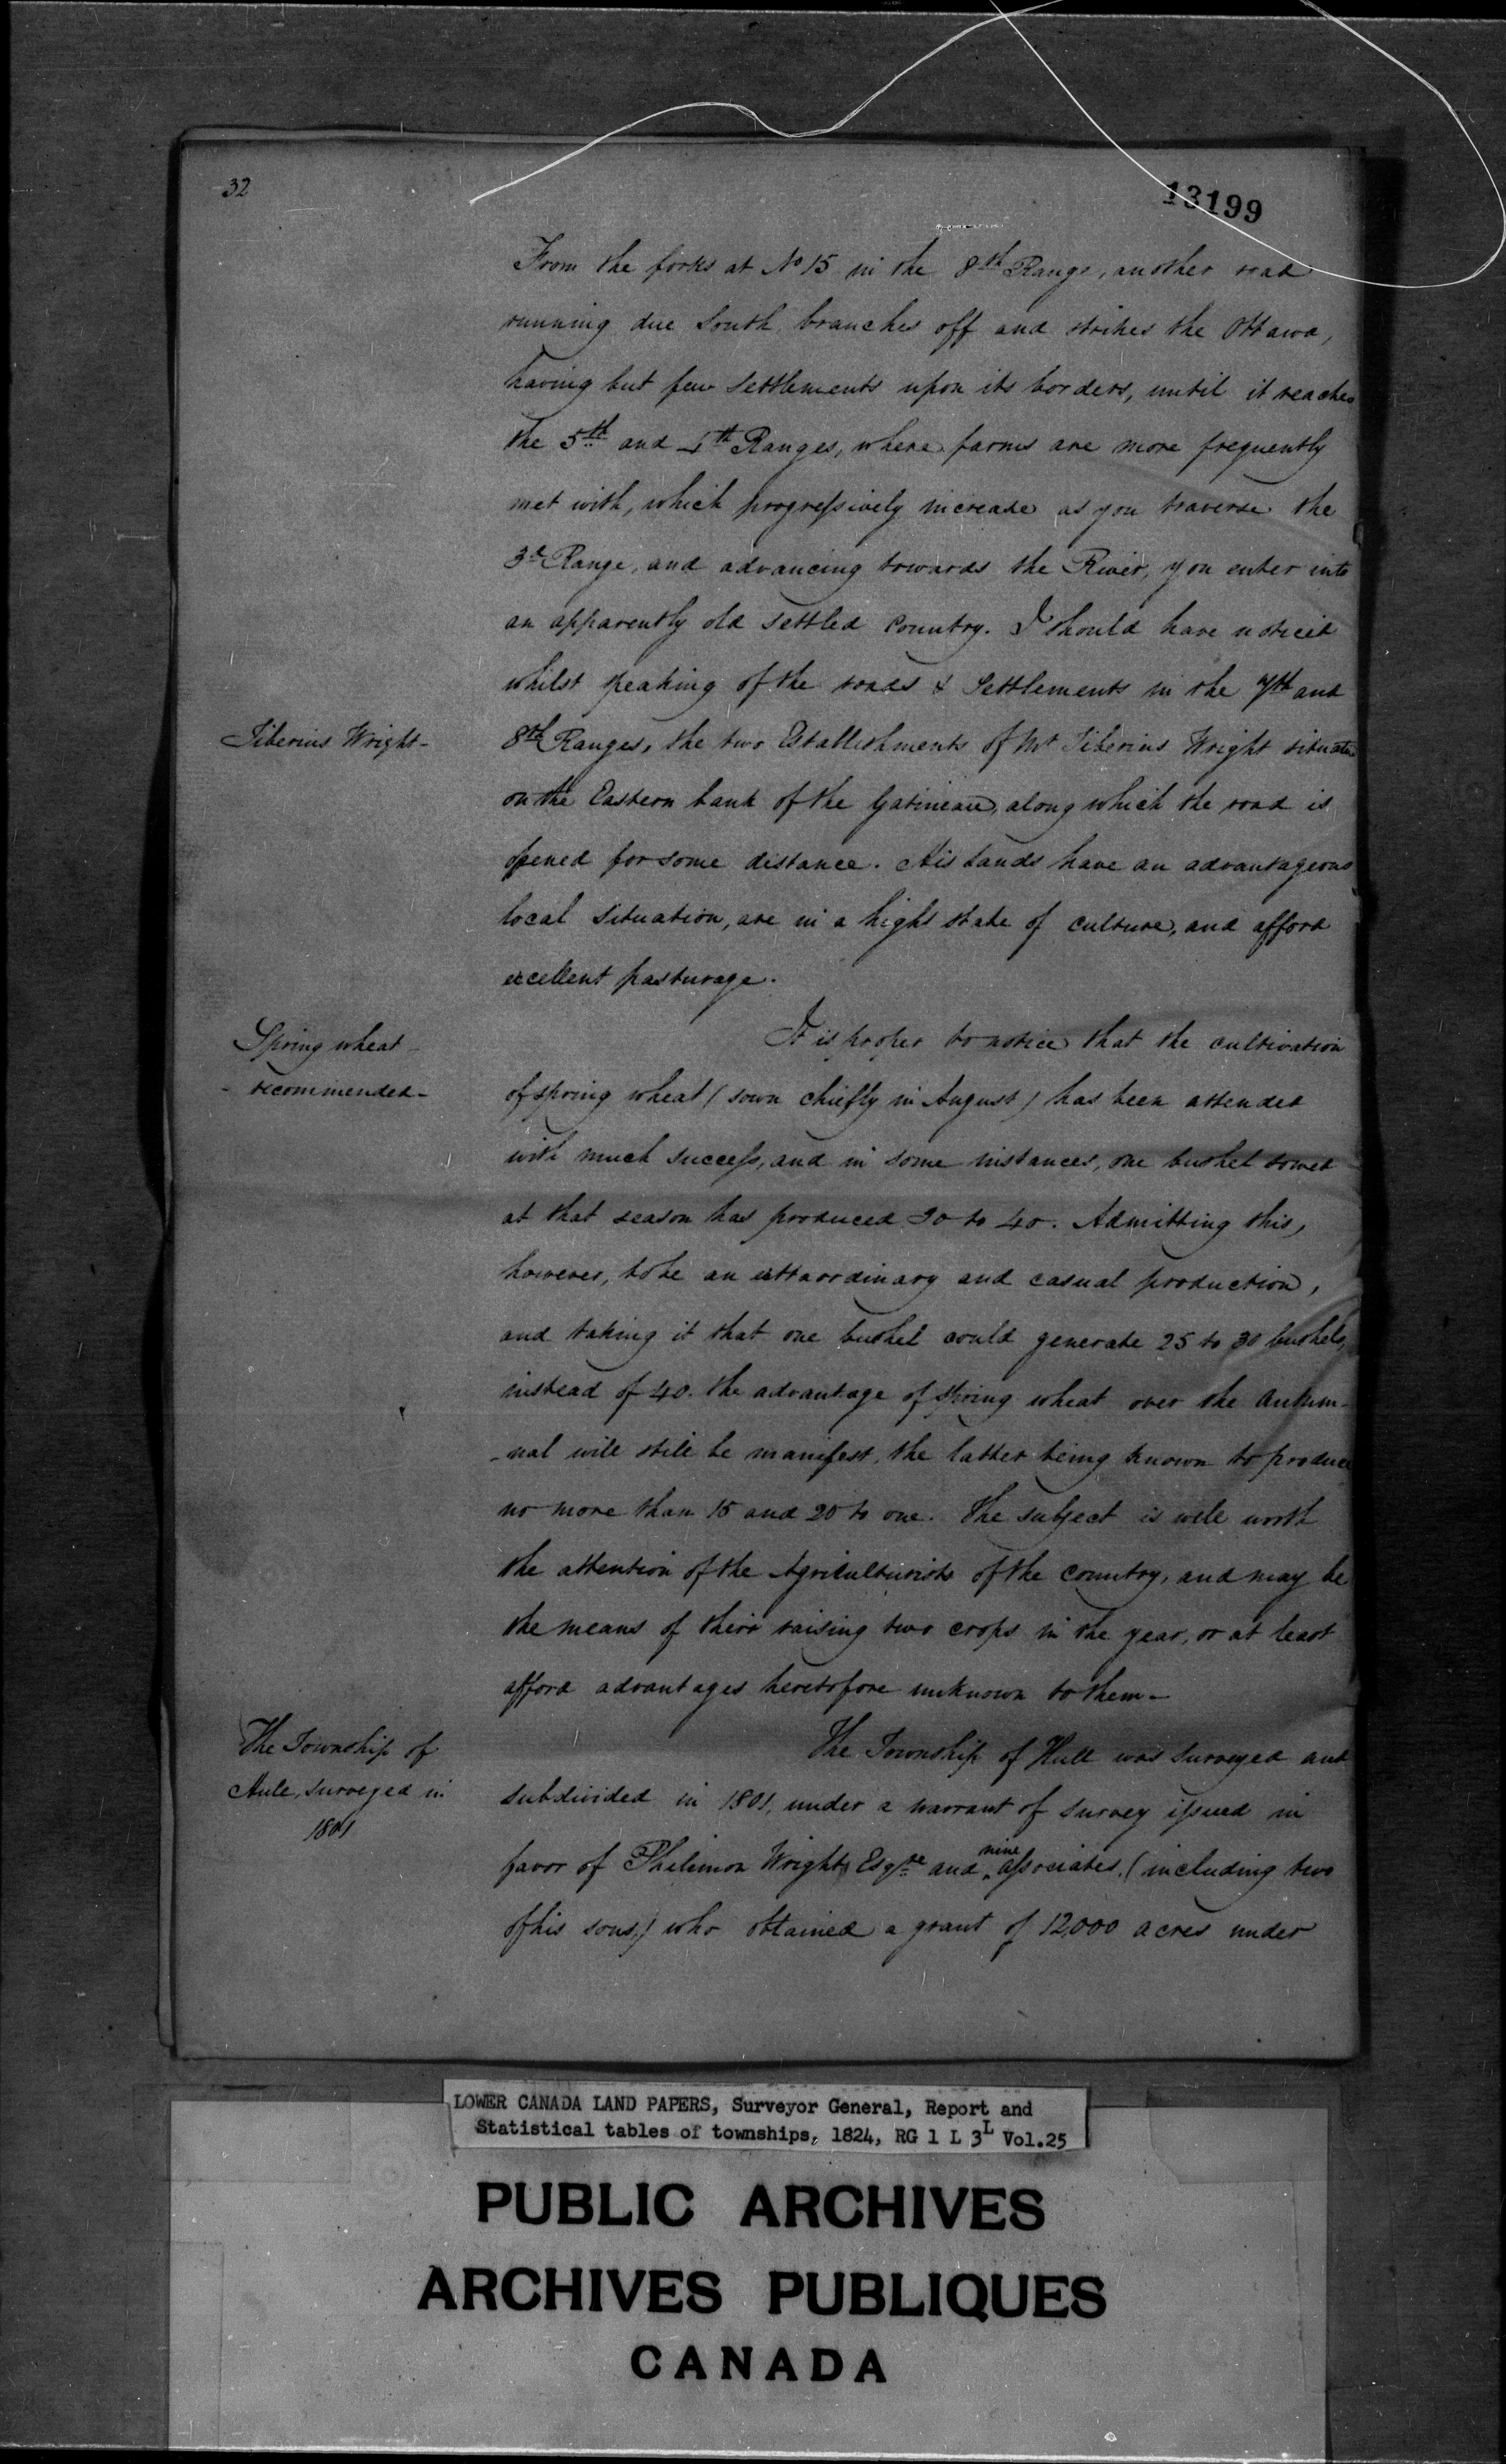 32
13199
From the forks at No 15 in the 8th Range, another road
running due South branches off and strikes the Ottawa,
having but few Settlements upon its borders, until it reaches
the 5th and 4th Ranges, where farms are more frequently
met with, which progressively increase as you traverse the
3d Range, and advancing towards the River, you enter into
an apparently old settled Country. I should have noticed
whilst speaking of the roads & Settlements in the 7th and
Tiberius Wright-
8th Ranges, the two Establishments of Mr Tiberius Wright situate
on the Eastern bank of the Gatineau, along which the road is
opened for some distance. His Lands have an advantageous
local Situation, are in a high state of culture, and afford
excellent pasturage.
Spring wheat-
- recommended-
It is proper to notice that the cultivation
of spring wheat (sown chiefly in August) has been attended
with much success, and in some instances, one bushel sowed
at that season has produced 30 to 40. Admitting this,
however, to be an extraordinary and casual production,
and taking it that one bushel could generate 25 to 30 bushels,
instead of 40. the advantage of spring wheat over the Autum-
-nal will still be manifest, the latter being known to produce
no more than 15 and 20 to one. The subject is well worth
the attention of the Agriculturists of the Country, and may be
the means of their raising two crops in the year, or at least
afford advantages heretofore unknown to them-
The Township of
Hull, surveyed in
1801
The Township of Hull was Surveyed and
subdivided in 1801, under a warrant of survey issued in
favor of Philemon Wright Esqre and nine associates, (including two
of his sons,) who obtained a grant of 12,000 acres under
LOWER CANADA LAND PAPERS, Surveyor General, Report and
Statistical tables of townships, 1824, RG 1 L 3L Vol.25
PUBLIC ARCHIVES
ARCHIVES PUBLIQUES
CANADA